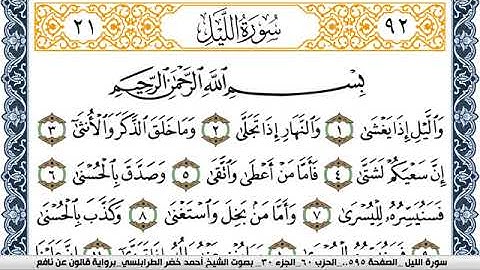 ٩٢ سُورَةُ اللَّيْلِ ٢١
بِسْمِ اللَّهِ الرَّحْمَٰنِ الرَّحِيمِ
وَالَّيْلِ إِذَا يَغْشَىٰ ١ وَالنَّهَارِ إِذَا تَجَلَّىٰ ٢ وَمَا خَلَقَ الذَّكَرَ وَالْأُنثَىٰ ٣
إِنَّ سَعْيَكُمْ لَشَتَّىٰ ٤ فَأَمَّا مَنْ أَعْطَىٰ وَاتَّقَىٰ ٥ وَصَدَّقَ بِالْحُسْنَىٰ ٦
فَسَنُيَسِّرُهُ لِلْيُسْرَىٰ ٧ وَأَمَّا مَنْ بَخِلَ وَاسْتَغْنَىٰ ٨ وَكَذَّبَ بِالْحُسْنَىٰ
سورة الليل _الصفحة ٥٩٥_ الحزب ٦٠_ الجزء ٣٠_ بصوت الشيخ أحمد خضر الطرابلسي_برواية قالون عن نافع